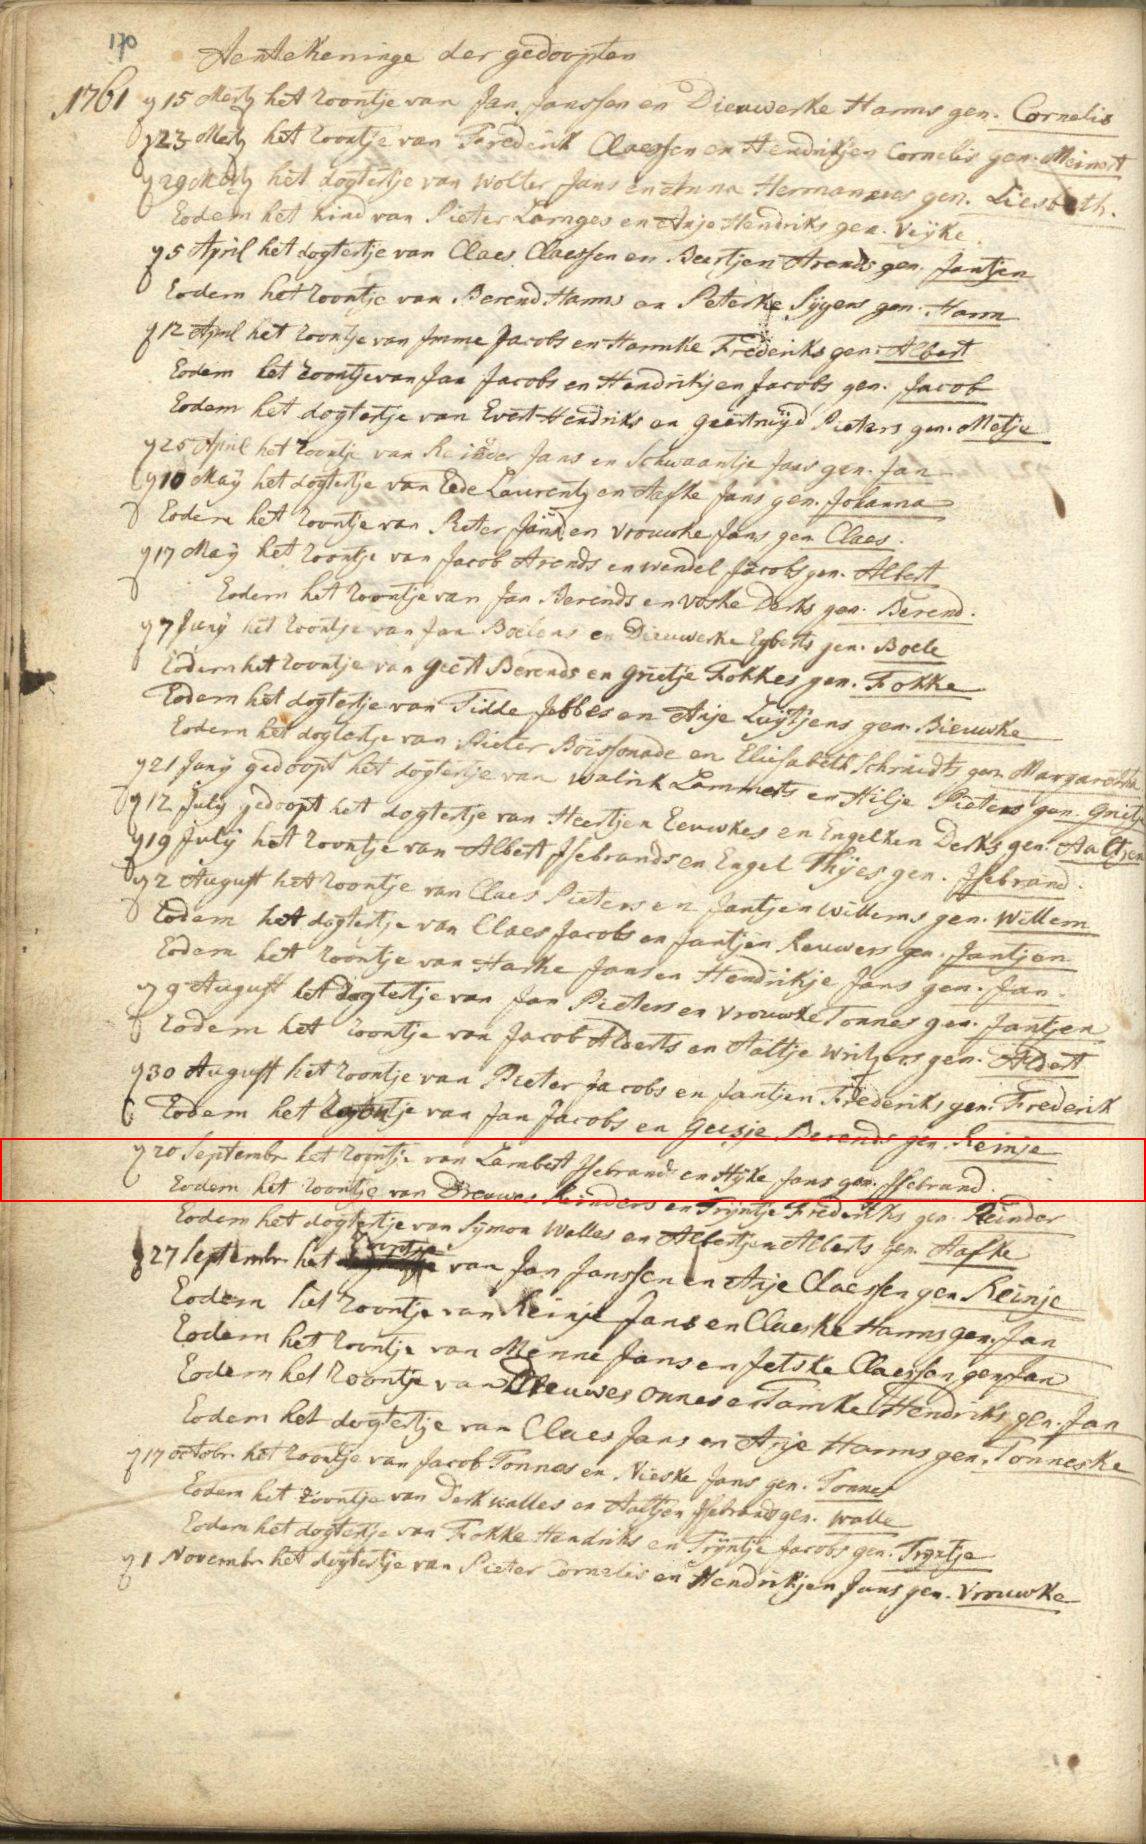 170
Aentekeninge der gedoopten
1761 y 15 Mertz het zoontje van Jan Janssen en Dieuwerke Harms gen. Cornelis
y 23 Mertz het zoontje van Frederik Claessen en Hendrikjen Cornelis gen. Meinert
y 29 Mertz het dogtertje van Wolter Jans en Anna Hermannus gen. Liesbeth.
Eodem het kind van Pieter Lamges en Anje Hendriks gen. Veijke
y 5 April het dogtertje van Claes Claessen en Beertjen Arends gen. Jantjen
Eodem het zoontje van Berend Harms en Peterke Sijgers gen. Harm
y 12 April het zoontje van Imme Jacobs en Harmke Frederiks gen. Albert
Eodem het zoontje van Jan Jacobs en Hendrikjen Jacobs gen. Jacob
Eodem het dogtertje van Evert Hendriks en Geertruijd Pieters gen. Metje
y 25 April het zoontje van Reinder Jans en Schwaantje Jans gen. Jan
y 10 Maij het dogtertje van Eede Laurentz en Aafke Jans gen. Johanna
Eodem het zoontje van Pieter Jans en Vrouwke Jans gen Claes.
y 17 Maij het zoontje van Jacob Arends en Wendel Jacobs gen. Albert
Eodem het zoontje van Jan Berends en Voske Derks gen. Berend.
y 7 Junij het zoontje van Jan Boelens en Dieuwerke Egberts gen. Boele
Eodem het zoontje van Geert Berends en Grietje Fokkes gen. Fokke
Eodem het dogtertje van Tidde Jebbes en Anje Luijtjens gen. Bieuwke
Eodem het dogtertje van Pieter Boissonade en Eliesabeth Schmidts gen. Margaretha
y 21 Junij gedoopt het dogtertje van Walink Lammerts en Hilje Pieters gen. Grietje
y 12 Julij gedoopt het dogtertje van Heertjen Eeuwkes en Engelken Derks gen. Aaltjen
y 19 Julij het zoontje van Albert IJsebrands en Engel Thijes gen. IJsebrand.
y 2 August het zoontje van Claes Pieters en Jantjen Willems gen. Willem
Eodem het dogtertje van Claes Jacobs en Jantjen Reuwers gen. Jantjen
Eodem het zoontje van Harke Jans en Hendrikje Jans gen. Jan
y 9 August het dogtertje van Jan Pieters en Vrouwke Tonnes gen. Jantjen
Eodem het zoontje van Jacob Alderts en Aaltje gen. Aldert
y 30 August het zoontje van Pieter Jacobs en Jantjen Frederiks gen. Frederik
Eodem het zoontje van Jan Jacobs en Geesje Berends gen. Reinje
y 20 Septembr het zoontje van Lambert IJsebrands en Hijke Jans gen. IJsebrand.
Eodem het zoontje van Dreuwes Reinders en Trijntje Frederiks gen. Reinder
Eodem het dogtertje van Sijmon Walles en Albertjen Alberts gen. Aafke
y 27 Septembr het zoontje van Jan Janssen en Anje Claessen gen. Reinje
Eodem het zoontje van Reinje Jans en Claeske Harms gen. Jan
Eodem het zoontje van Menne Jans en Jetske Claessen gen. Jan
Eodem het zoontje van Dreuwes Onnes en Tamke Hendriks gen. Jan
Eodem het dogtertje van Claes Jans en Anje Harms gen. Tonneske
y 17 octobr het zoontje van Jacob Tonnes en Nieske Jans gen. Tonnes
Eodem het zoontje van Derk Walles en Aaltjen IJsebrands gen. Walle
Eodem het dogtertje van Fokke Hendriks en Trijntje Jacobs gen. Trijntje
y 1 Novembr het dogtertje van Pieter Cornelis en Hendrikjen Jans gen. Vrouwke